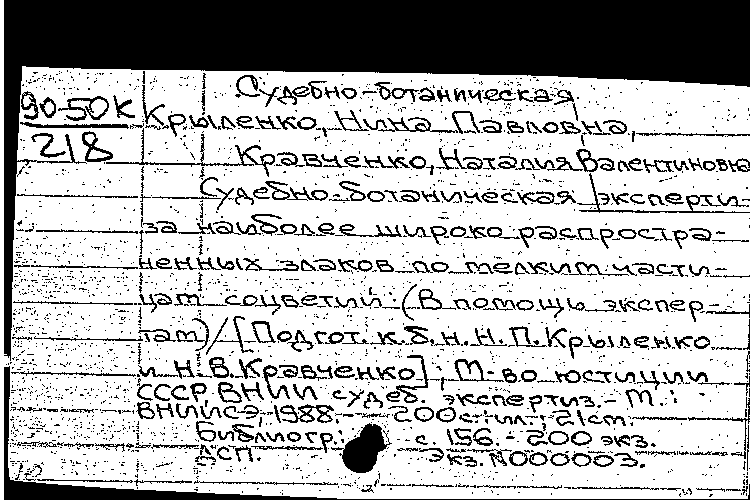 Судебно-ботаническая
90-50К
218
Крыленко, Нина Павловна,
Кравченко, Наталия Валентиновна
Судебно-ботаническая эксперти-
за наиболее широко распростра-
ненных злаков по мелким части-
цам соцветий: (В помощь экспер-
там)/[Подгот. к.б.н. Н.П.Крыленко
и Н.В.Кравченко]; М-во юстиции
СССР, ВНИИ судеб. экспертиз.- М.:
ВНИИСЭ, 1988.- 200с.:ил.; 21см.
Библиогр.: с. 156.- 200 экз.
ДСП. Экз.N000003.